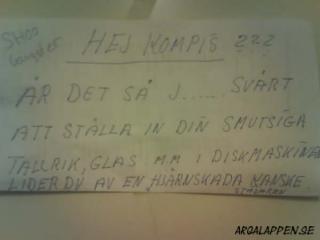 HEJ KOMPIS ???
ÄR DET SÅ J..... SVÅRT
ATT STÄLLA IN DIN SMUTSIGA
TALLRIK, GLAS MM I DISKMASKINEN
LIDER DU AV EN HJÄRNSKADA KANSKE
STÄDAREN
ARGALAPPEN.SE